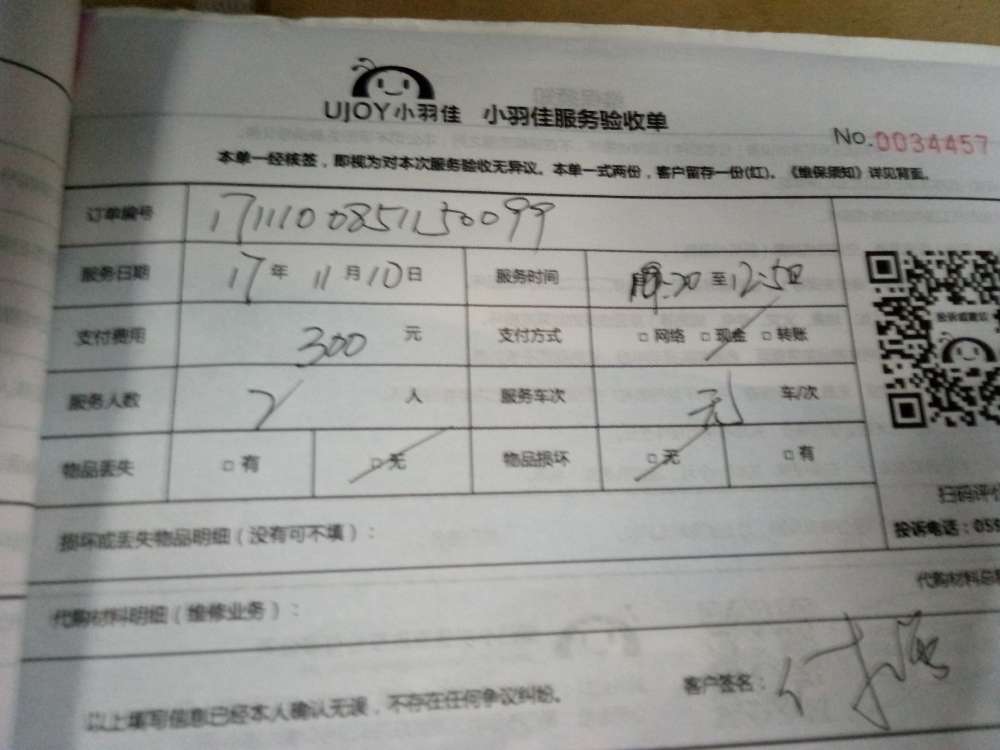 UJOY小羽佳 小羽佳服务验收单
No.0034457
本单一经核签，即视为对本次服务验收无异议。本单一式两份，客户留存一份(红)。《维保须知》详见背面。
订单编号 1711100851150099
服务日期 17年 11月10日 服务时间 至12:50
支付费用 300 元 支付方式 □网络 □现金 □转账
服务人数 2 人 服务车次 无 车/次
物品丢失 □有 □无 物品损坏 □无 □有
投诉或建议
扫码评价
投诉电话：059
损坏或丢失物品明细（没有可不填）：
代购材料总
代购材料明细（维修业务）：
以上填写信息已经本人确认无误，不存在任何争议纠纷。 客户签名：